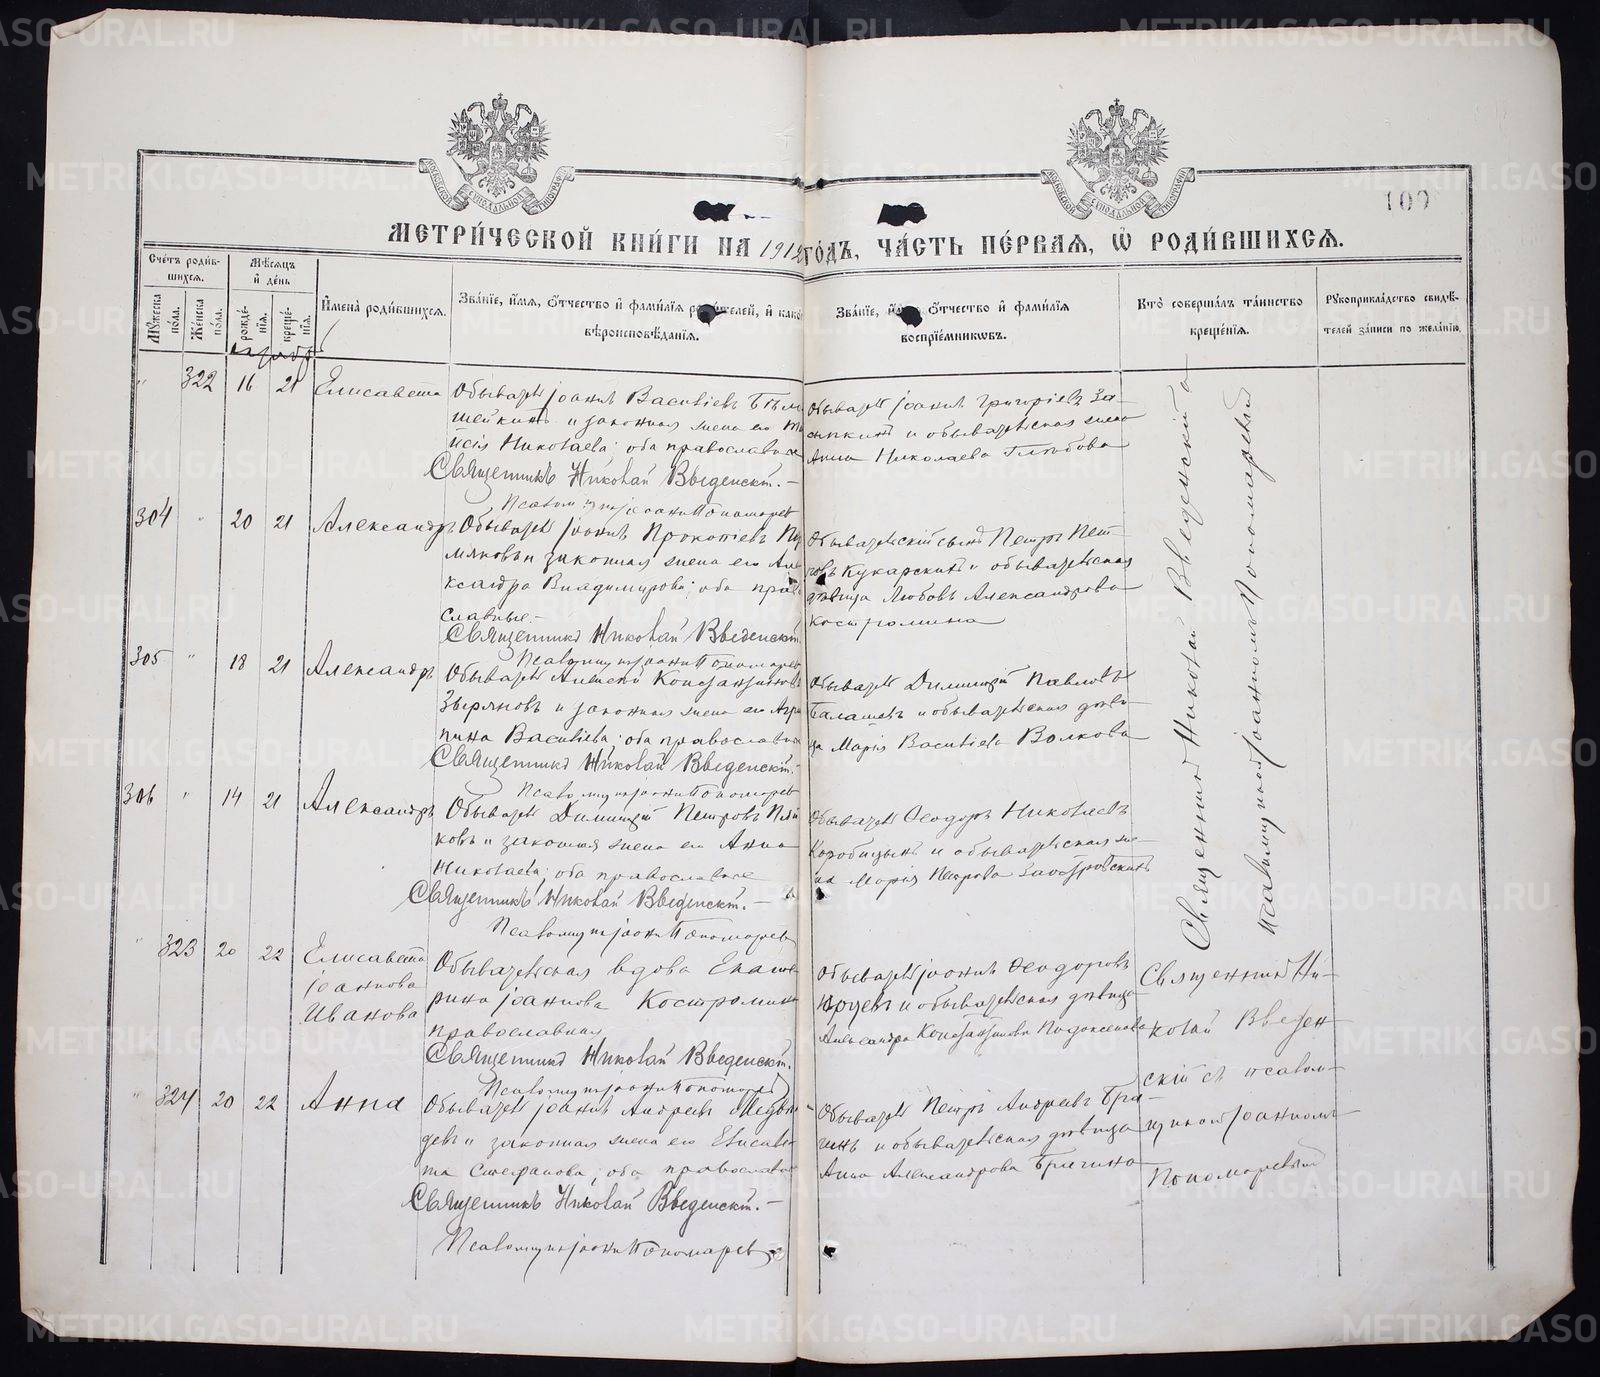 109
МЕТРИ́ЧЕСКОЙ КНИ́ГИ НА 1912 ГО́ДЪ, ЧА́СТЬ ПЕ́РВАЯ, Ѡ РОДИ́ВШИХСЯ.
Сче́тъ роди́в-
шихся.
Му́жеска по́ла.
Же́нска по́ла.
Мѣ́сяцъ и де́нь
рожде́нія.
креще́нія.
Имена̀ роди́вшихся.
Зва́ніе, и́мя, ѻ́тчество и фами́лія родителей, и како
вѣроисповѣ́данія.
Зва́ніе, ѻ́тчество и фами́лія
воспріе́мниковъ.
Кто̀ соверша́лъ та́инство
креще́нія.
Рукоприкла́дство свидѣ́-
телей за́писи по жела́нію.
322 16 21 Елисавета
Обыватель Іоаннъ Васильевъ
и законная жена его
Николаева; оба православные
Священникъ Николай Введенскій.
Псаломщикъ Іоаннъ Пономаревъ
Обыватель Іоаннъ Григорьевъ За-
и обывательская жена
Анна Николаева Глыбова
304 20 21 Александръ
Обыватель Іоаннъ Прокопьевъ Пер
мяковъ и законная жена его Але
ксандра Владимирова; оба право
славные.-
Священникъ Николай Введенскій
Псаломщикъ Іоаннъ Пономаревъ
Обывательскій сынъ Петръ Пет-
ровъ Кукарскихъ и обывательская
дѣвица Любовь Александрова
Костромина
305 18 21 Александръ
Обыватель Алексѣй Константиновъ
Зыряновъ и законная жена его Агрип
пина Васильева; оба православные
Священникъ Николай Введенскій.
Псаломщикъ Іоаннъ Пономаревъ
Обыватель Димитрій Павловъ
Балашевъ и обывательская дѣви-
ца Марія Васильева Волкова
306 14 21 Александръ
Обыватель Димитрій Петровъ
ковъ и законная жена его Анна
Николаева; оба православные
Священникъ Николай Введенскій.-
Псаломщикъ Іоаннъ Пономаревъ
Обыватель Ѳеодоръ Николаевъ
Коробицынъ и обывательская же-
на Марія Петрова
323 20 22 Елисавета
Іоаннова
Иванова
Обывательская вдова Екате
рина Іоаннова Костромина
православная
Священникъ Николай Введенскій.
Псаломщикъ Іоаннъ Пономаревъ
Обыватель Іоаннъ Ѳеодоровъ
и обывательская дѣвица
Александра Константинова
Священникъ Ни-
колай Введен
скій съ псалом-
щикомъ Іоанномъ
Пономаревымъ
324 20 22 Анна
Обыватель Іоаннъ Андреевъ Медвѣ
девъ и законная жена его Елисаве
та Стефанова; оба православные
Священникъ Николай Введенскій.-
Псаломщикъ Іоаннъ Пономаревъ
Обыватель Петръ Андреевъ Бра-
гинъ и обывательская дѣвица
Анна Александрова Брагина
Священникъ Николай Введенскій съ
псаломщикомъ Іоанномъ Пономаревымъ
METRIKI.GASO-URAL.RU